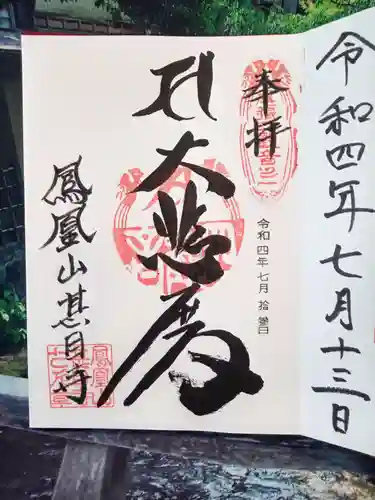 令和四年七月十三日
奉拝
令和四年七月 拾參日
大悲殿
鳳凰山甚目寺